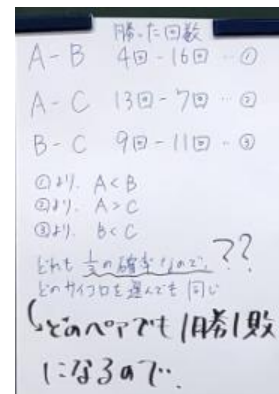 勝った回数
A-B 4回-16回…①
A-C 13回-7回…②
B-C 9回-11回…③
①より、A<B
②より、A>C
③より、B<C
どれも 1/2の確率なので、??
どのサイコロを選んでも同じ
どのペアでも1勝1敗
になるので…